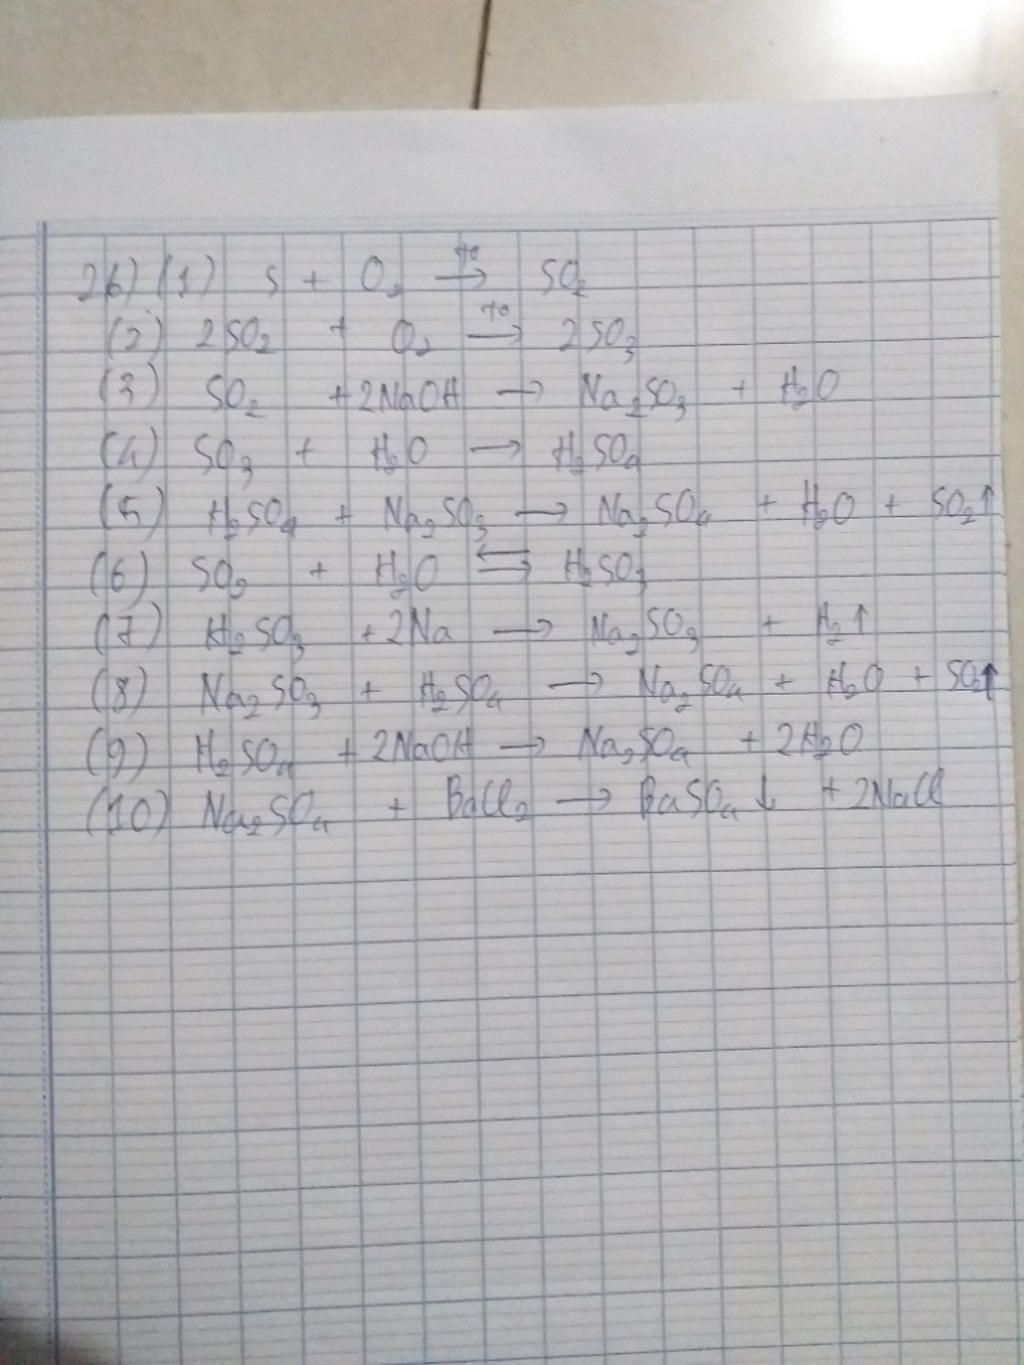 26) (1) S + O₂ →^{t°} SO₂
(2) 2SO₂ + O₂ →^{t°} 2SO₃
(3) SO₂ + 2NaOH → Na₂SO₃ + H₂O
(4) SO₃ + H₂O → H₂SO₄
(5) H₂SO₄ + Na₂SO₃ → Na₂SO₄ + H₂O + SO₂↑
(6) SO₂ + H₂O ⇌ H₂SO₃
(7) H₂SO₃ + 2Na → Na₂SO₃ + H₂↑
(8) Na₂SO₃ + H₂SO₄ → Na₂SO₄ + H₂O + SO₂↑
(9) H₂SO₄ + 2NaOH → Na₂SO₄ + 2H₂O
(10) Na₂SO₄ + BaCl₂ → BaSO₄↓ + 2NaCl